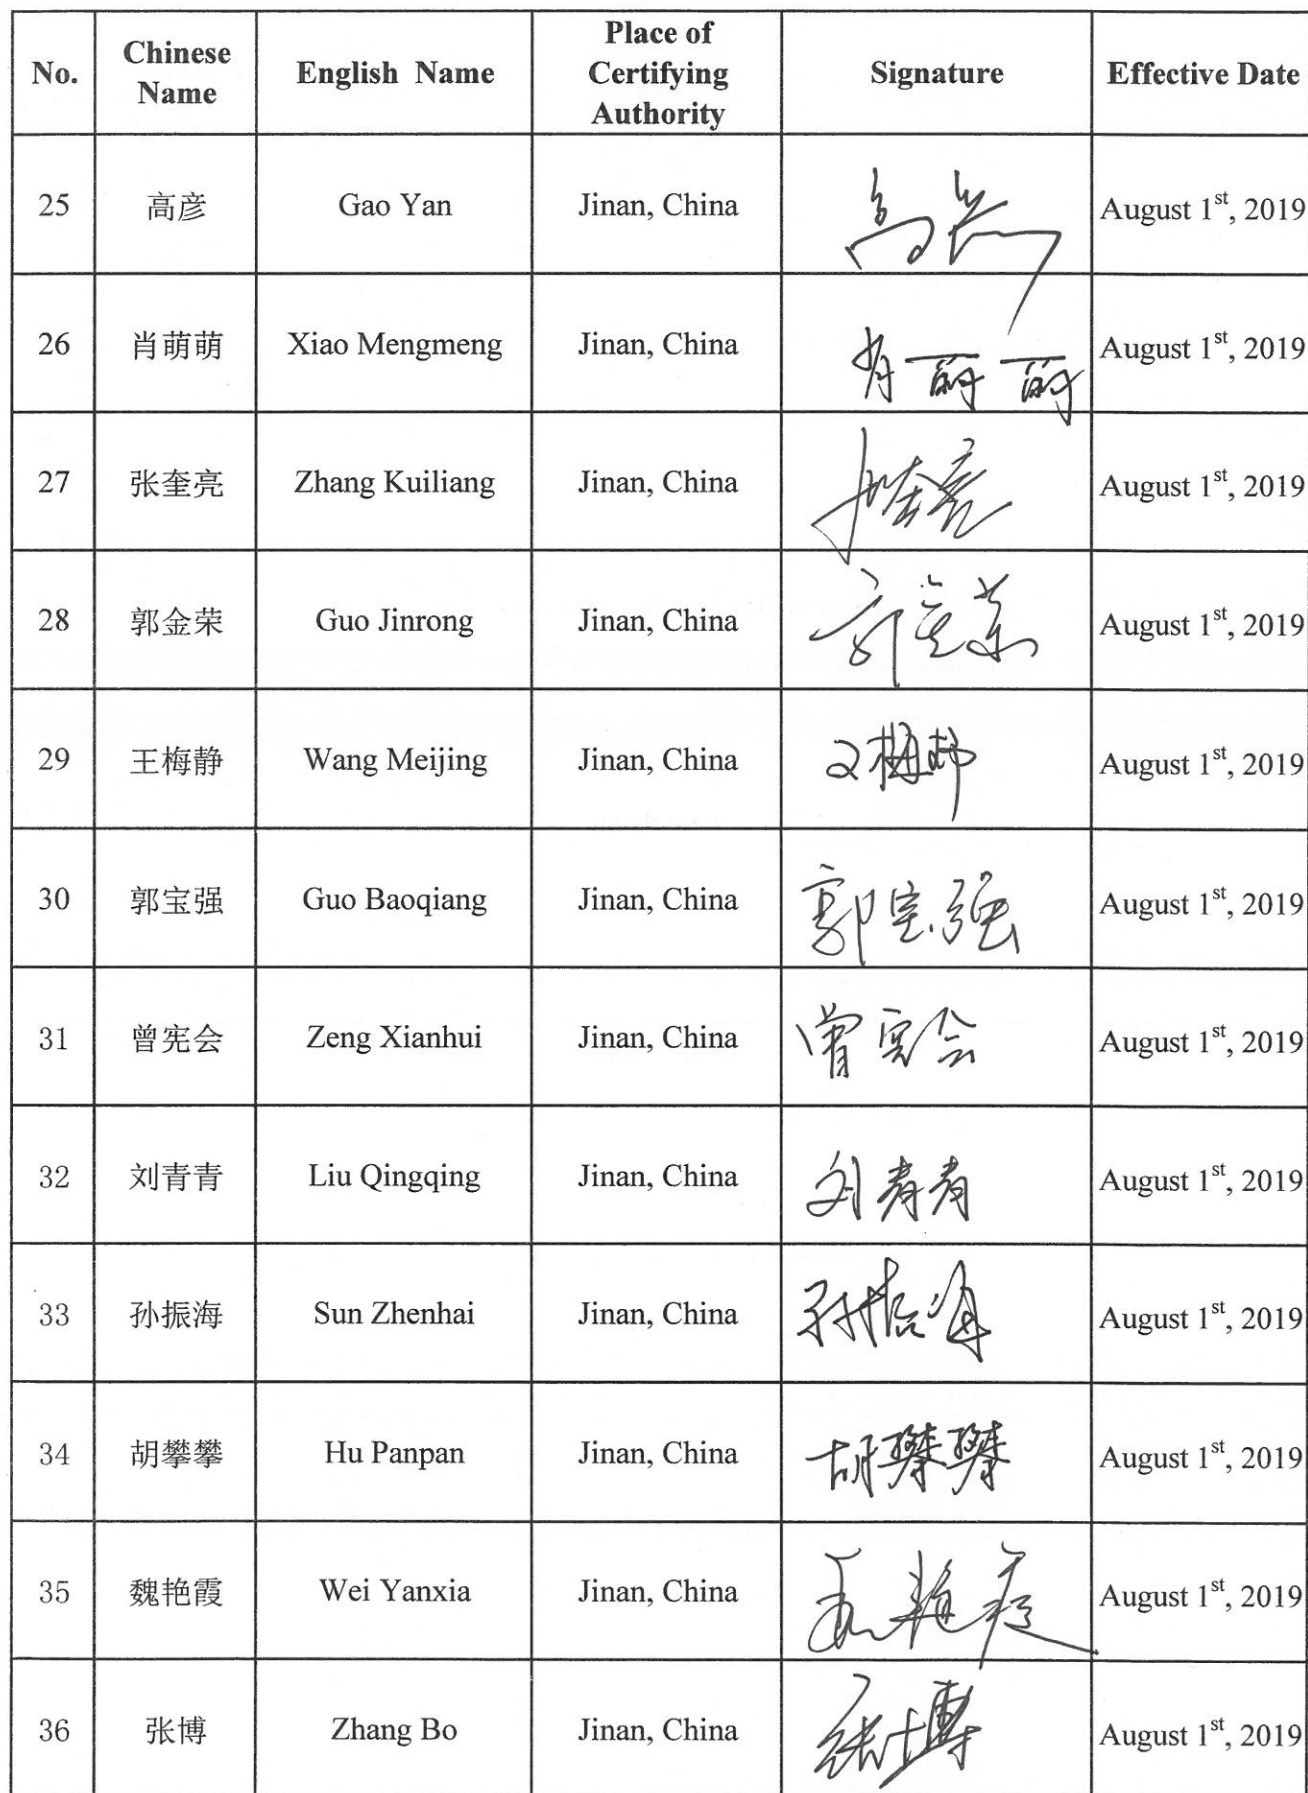 No. Chinese Name English Name Place of Certifying Authority Signature Effective Date
25 高彦 Gao Yan Jinan, China 高彦 August 1st, 2019
26 肖萌萌 Xiao Mengmeng Jinan, China 肖萌萌 August 1st, 2019
27 张奎亮 Zhang Kuiliang Jinan, China 张奎亮 August 1st, 2019
28 郭金荣 Guo Jinrong Jinan, China 郭金荣 August 1st, 2019
29 王梅静 Wang Meijing Jinan, China 王梅静 August 1st, 2019
30 郭宝强 Guo Baoqiang Jinan, China 郭宝强 August 1st, 2019
31 曾宪会 Zeng Xianhui Jinan, China 曾宪会 August 1st, 2019
32 刘青青 Liu Qingqing Jinan, China 刘青青 August 1st, 2019
33 孙振海 Sun Zhenhai Jinan, China 孙振海 August 1st, 2019
34 胡攀攀 Hu Panpan Jinan, China 胡攀攀 August 1st, 2019
35 魏艳霞 Wei Yanxia Jinan, China 魏艳霞 August 1st, 2019
36 张博 Zhang Bo Jinan, China 张博 August 1st, 2019